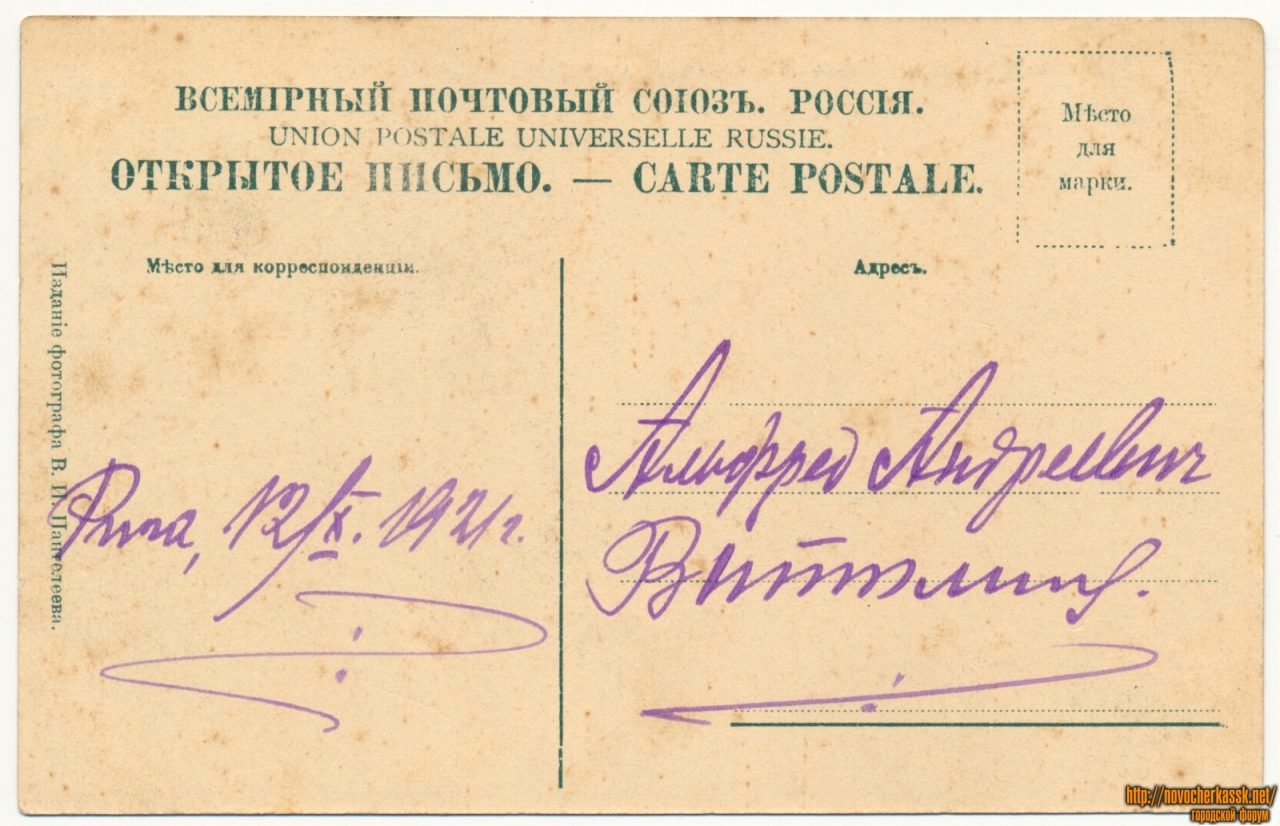 ВСЕМІРНЫЙ ПОЧТОВЫЙ СОЮЗЪ. РОССІЯ.
UNION POSTALE UNIVERSELLE RUSSIE.
ОТКРЫТОЕ ПИСЬМО. — CARTE POSTALE.
Мѣсто
для
марки.
Мѣсто для корреспонденціи.
Адресъ.
Изданіе фотографа В. И. Пантелеева.
Рига, 12/X. 1921 г.
Альфред Андреевич
http://novocherkassk.net/
городской форум